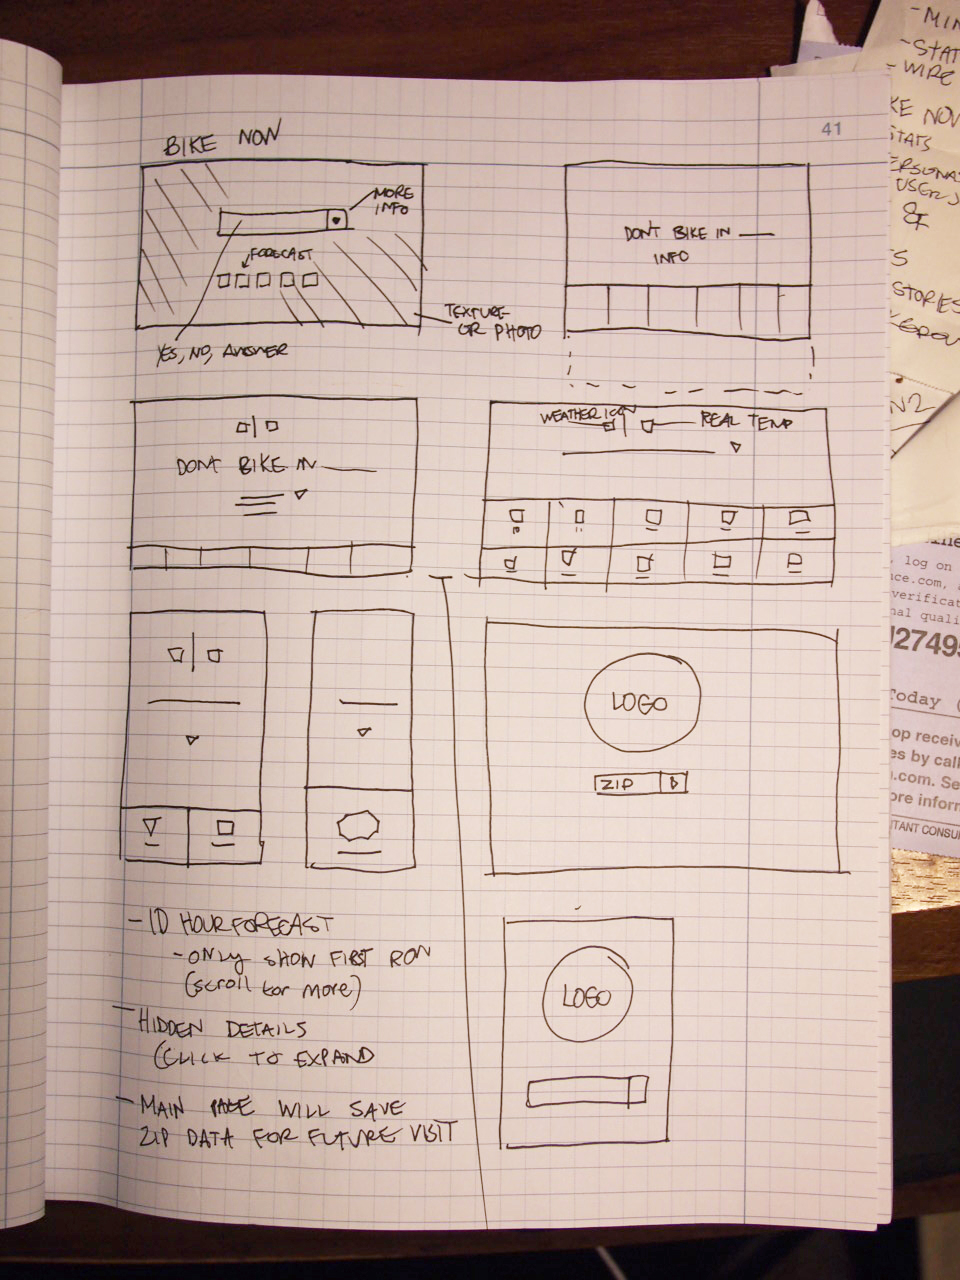 41
BIKE NOW
MORE
INFO
FORECAST
TEXTURE
OR PHOTO
YES, NO, ANSWER
DONT BIKE IN
INFO
DONT BIKE IN
WEATHER ICON
REAL TEMP
LOGO
ZIP
LOGO
- 10 HOUR FORECAST
- ONLY SHOW FIRST ROW
(scroll for more)
- HIDDEN DETAILS
(CLICK TO EXPAND
- MAIN PAGE WILL SAVE
ZIP DATA FOR FUTURE VISIT
- MIN
- STAT
- WIRE
KE NOW
STATS
ERSONA
USER
&
S
STORIES
N2
log on
ce.com,
verificat
nal quali
27495
Today (
op receiv
es by call
.com. Se
ore inform
TANT CONSU